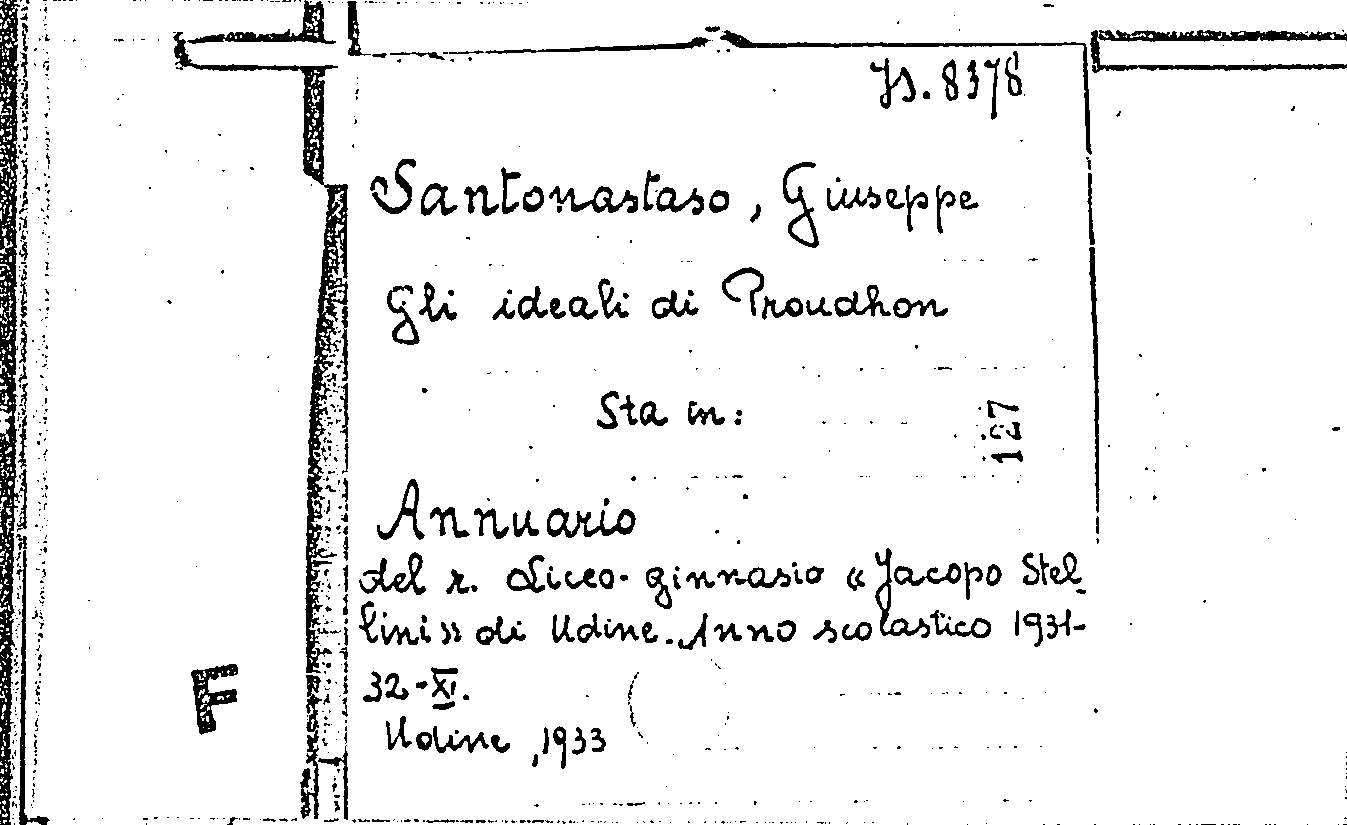 Is. 8378
Santonastaso, Giuseppe
Gli ideali di Proudhon
Sta in:
127
Annuario
del r. Liceo-ginnasio «Jacopo Stel-
lini» di Udine. Anno scolastico 1931-
32-XI.
Udine, 1933
F